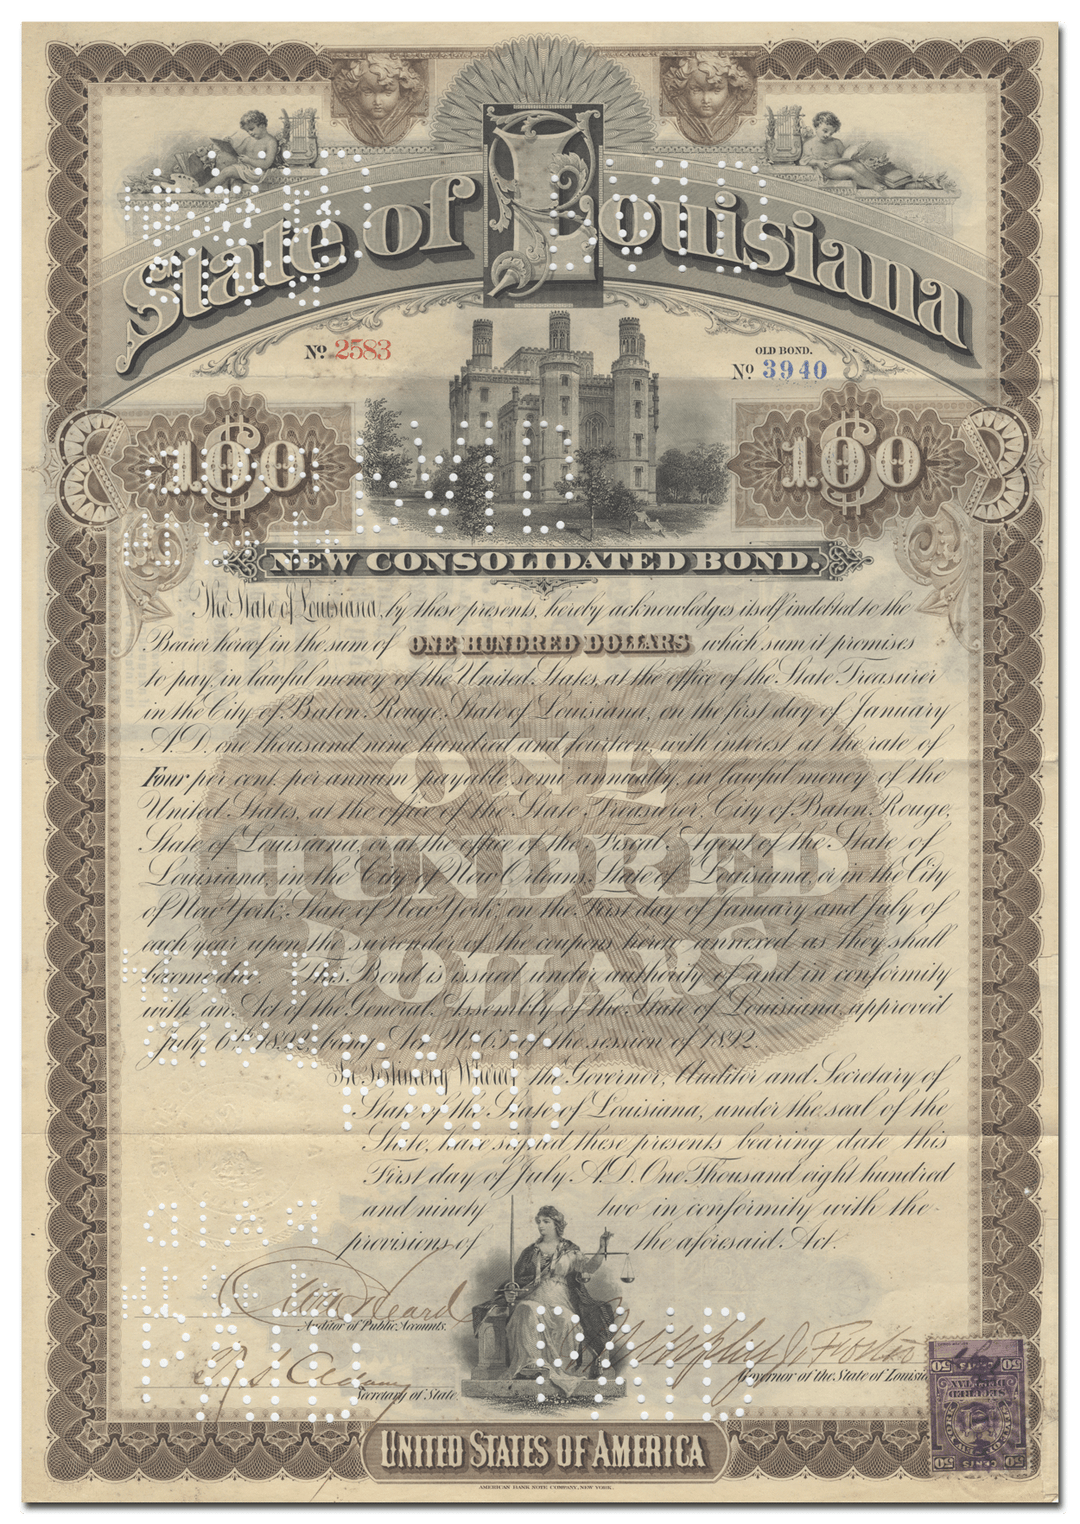 State of Louisiana
No. 2583
OLD BOND.
No. 3940
$100
$100
NEW CONSOLIDATED BOND.
The State of Louisiana, by these presents, hereby acknowledges itself indebted to the
Bearer hereof in the sum of ONE HUNDRED DOLLARS which sum it promises
to pay, in lawful money of the United States, at the office of the State Treasurer
in the City of Baton Rouge, State of Louisiana, on the first day of January
A.D. one thousand nine hundred and fourteen, with interest at the rate of
Four per cent. per annum payable semi annually, in lawful money of the
United States, at the office of the State Treasurer, City of Baton Rouge,
State of Louisiana, or at the office of the Fiscal Agent of the State of
Louisiana, in the City of New Orleans, State of Louisiana, or in the City
of New York, State of New York, on the First day of January and July of
each year upon the surrender of the coupons hereto annexed as they shall
become due. This Bond is issued under authority of and in conformity
with an Act of the General Assembly of the State of Louisiana, approved
July 6th 1892, being Act No. 65 of the session of 1892.
ONE
HUNDRED
DOLLARS
In Testimony Whereof the Governor, Auditor and Secretary of
State of the State of Louisiana, under the seal of the
State, have signed these presents bearing date this
First day of July A.D. One Thousand eight hundred
and ninety two in conformity with the
provisions of the aforesaid Act.
Heard
Auditor of Public Accounts.
Murphy J. Foster
Governor of the State of Louisi
T. S. Adams
Secretary of State.
50 CENTS 50
50 CENTS 50
UNITED STATES OF AMERICA
AMERICAN BANK NOTE COMPANY, NEW YORK.